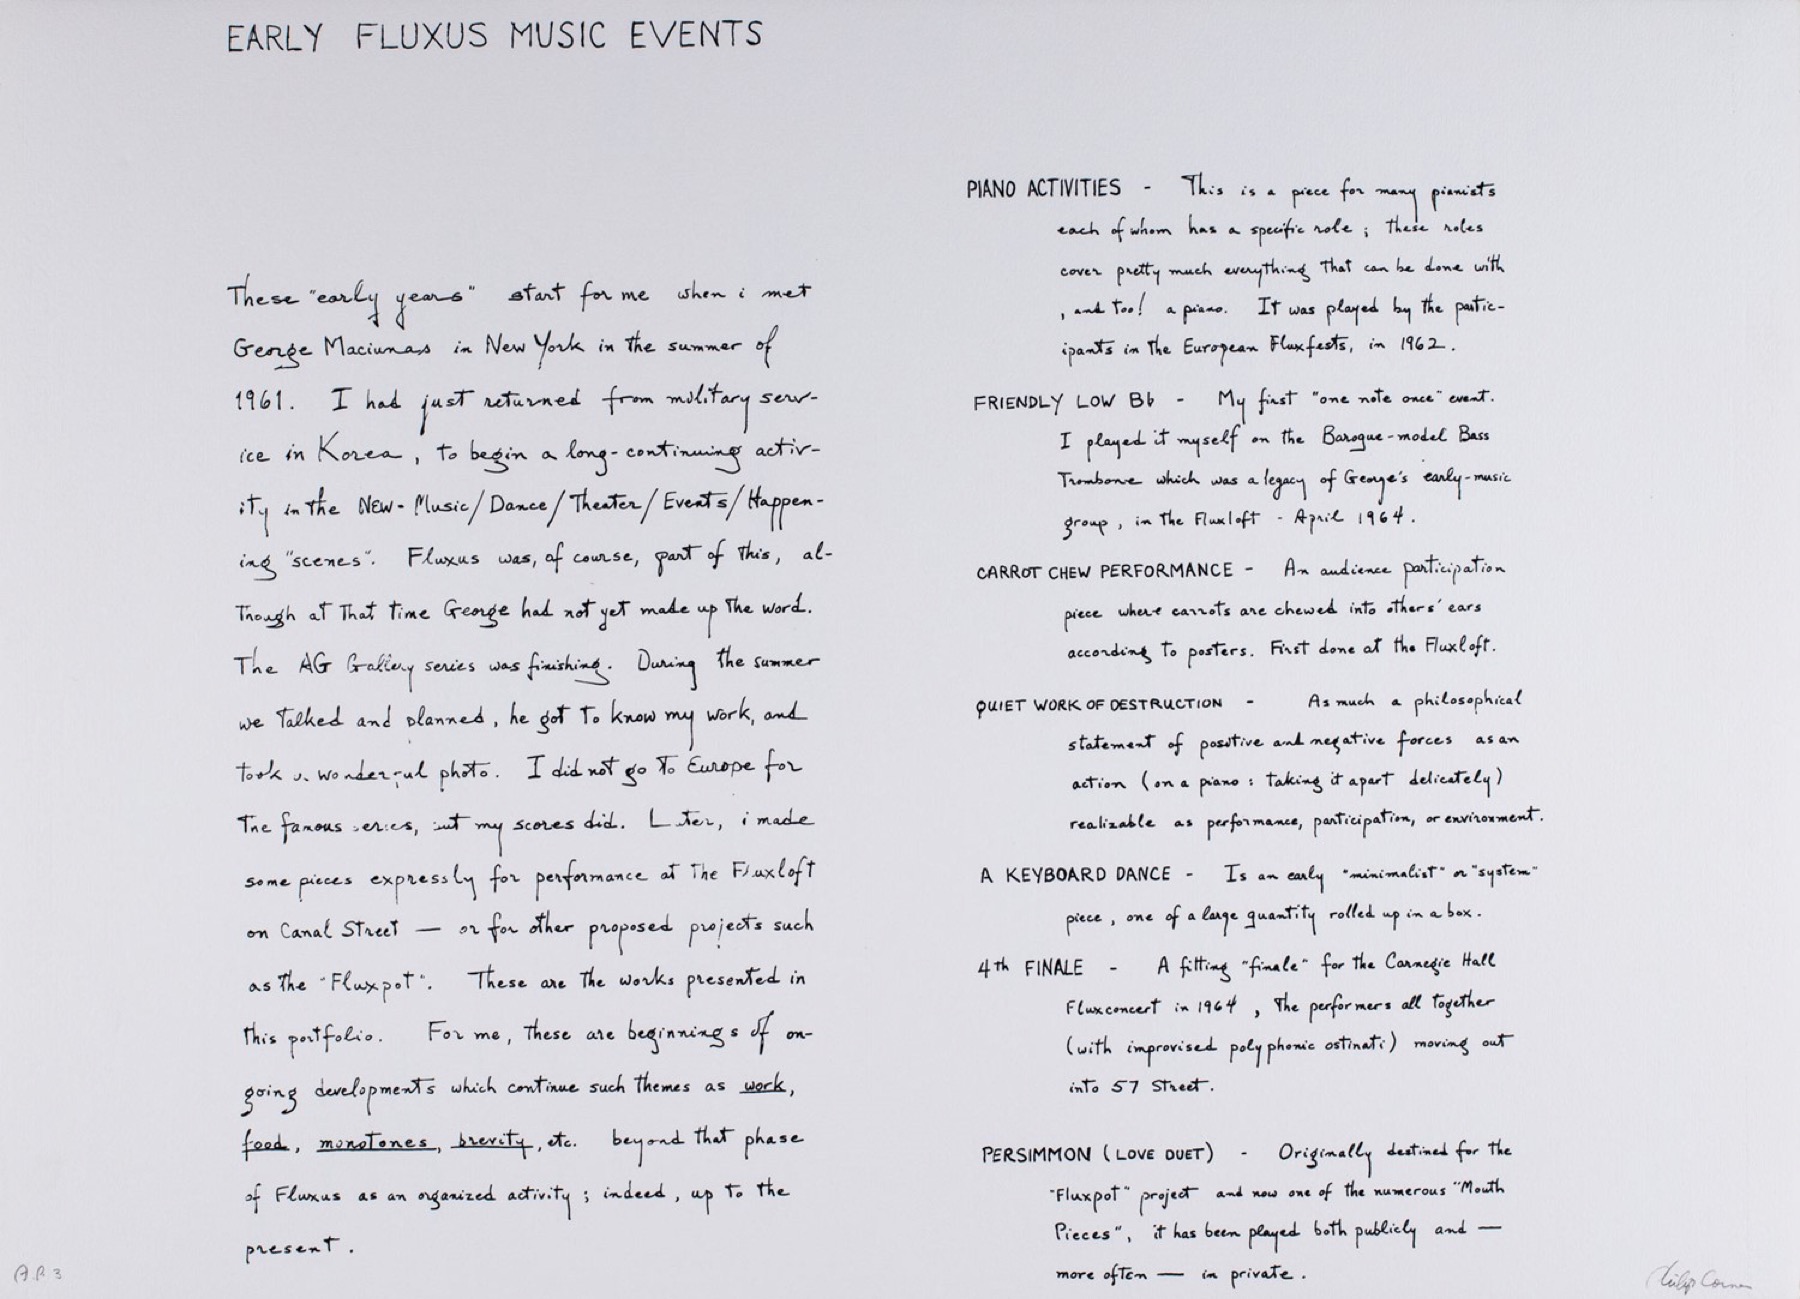 EARLY FLUXUS MUSIC EVENTS
These "early years" start for me when i met
George Maciunas in New York in the summer of
1961. I had just returned from military serv-
ice in Korea, to begin a long-continuing activ-
ity in the NEW-Music/Dance/Theater/Events/Happen-
ing "scenes". Fluxus was, of course, part of this, al-
though at that time George had not yet made up the word.
The AG Gallery series was finishing. During the summer
we talked and planned, he got to know my work, and
took a wonderful photo. I did not go to Europe for
the famous series, but my scores did. Later, i made
some pieces expressly for performance at the Fluxloft
on Canal Street — or for other proposed projects such
as the "Fluxpot". These are the works presented in
this portfolio. For me, these are beginnings of on-
going developments which continue such themes as work,
food, monotones, brevity, etc. beyond that phase
of Fluxus as an organized activity; indeed, up to the
present.
PIANO ACTIVITIES - This is a piece for many pianists
each of whom has a specific role; these roles
cover pretty much everything that can be done with
, and too! a piano. It was played by the partic-
ipants in the European Fluxfests, in 1962.
FRIENDLY LOW B♭ - My first "one note once" event.
I played it myself on the Baroque-model Bass
Trombone which was a legacy of George's early-music
group, in the Fluxloft - April 1964.
CARROT CHEW PERFORMANCE - An audience participation
piece where carrots are chewed into others' ears
according to posters. First done at the Fluxloft.
QUIET WORK OF DESTRUCTION - As much a philosophical
statement of positive and negative forces as an
action (on a piano: taking it apart delicately)
realizable as performance, participation, or environment.
A KEYBOARD DANCE - Is an early "minimalist" or "system"
piece, one of a large quantity rolled up in a box.
4th FINALE - A fitting "finale" for the Carnegie Hall
Fluxconcert in 1964, the performers all together
(with improvised polyphonic ostinati) moving out
into 57 Street.
PERSIMMON (LOVE DUET) - Originally destined for the
"Fluxpot" project and now one of the numerous "Mouth
Pieces", it has been played both publicly and —
more often — in private.
A.P. 3
Philip Corner